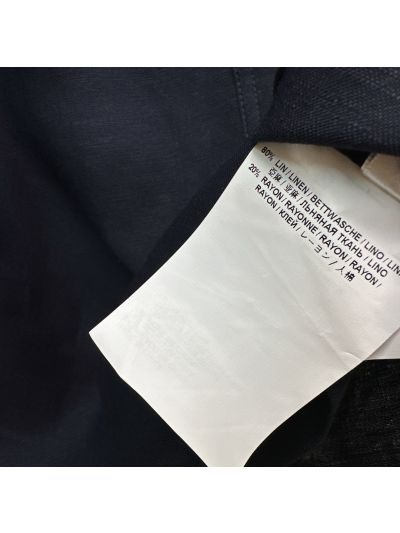 80% LIN / LINEN / BETTWASCHE / LINO / LINE
亞麻 / 亚麻 / ЛЬНЯНАЯ ТКАНЬ / LINO
20% RAYON / RAYONNE / RAYON / RAYON /
RAYON / КЛЕЙ / レーヨン / 人棉